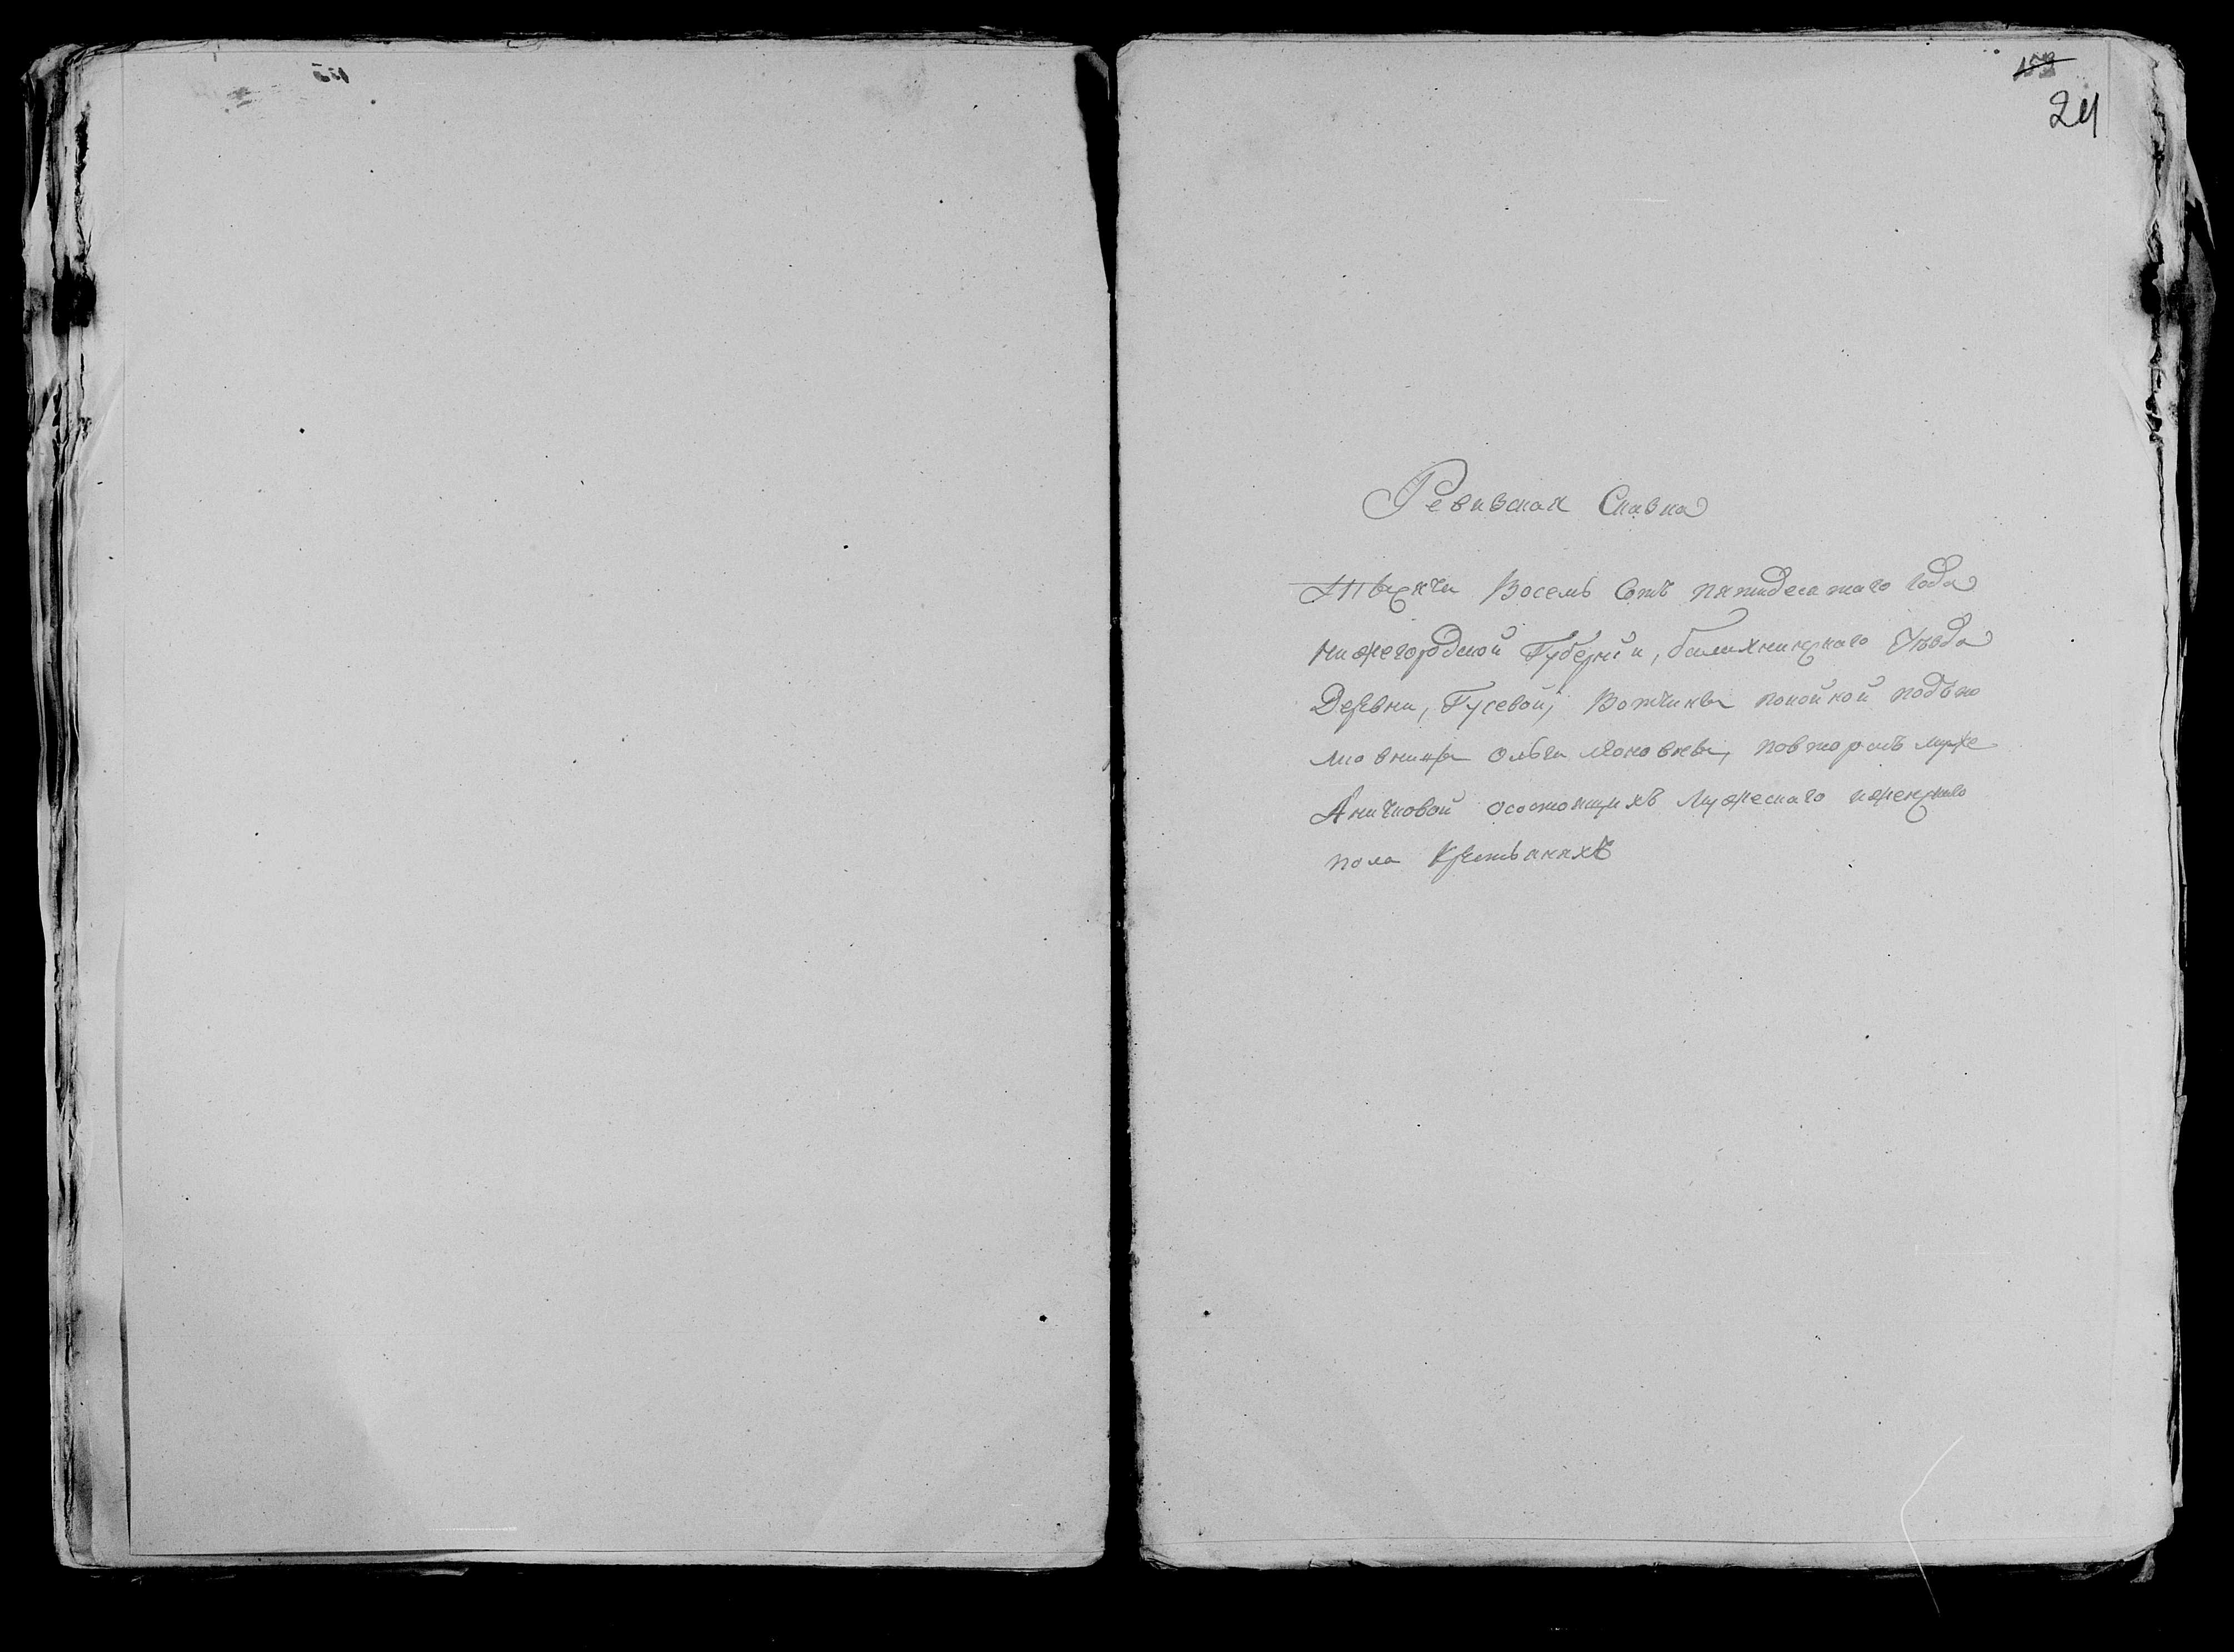 152
24
Ревизская Сказка
Тысячи Восемь Сотъ пятидесятаго Года
Нижегородской Губерніи, балахнинскаго Уѣзда
Деревни, Гусевой, Вотчины покойной подъпо
лковницы Ольги Яковлевы, повторомъ муже
Аничковой осостоящихъ Мужескаго иженскаго
пола Крестьянахъ